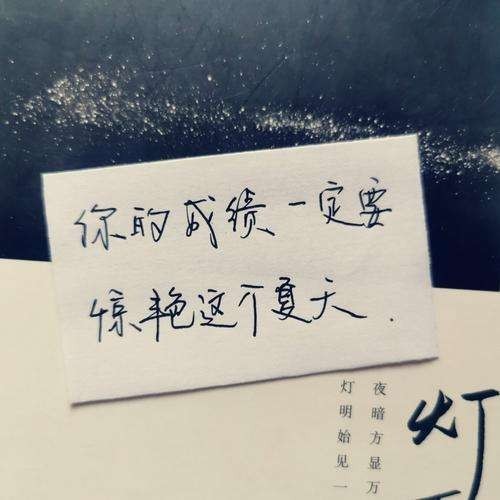 你的成绩一定要
惊艳这个夏天.
灯
夜暗方显万
灯明始见一